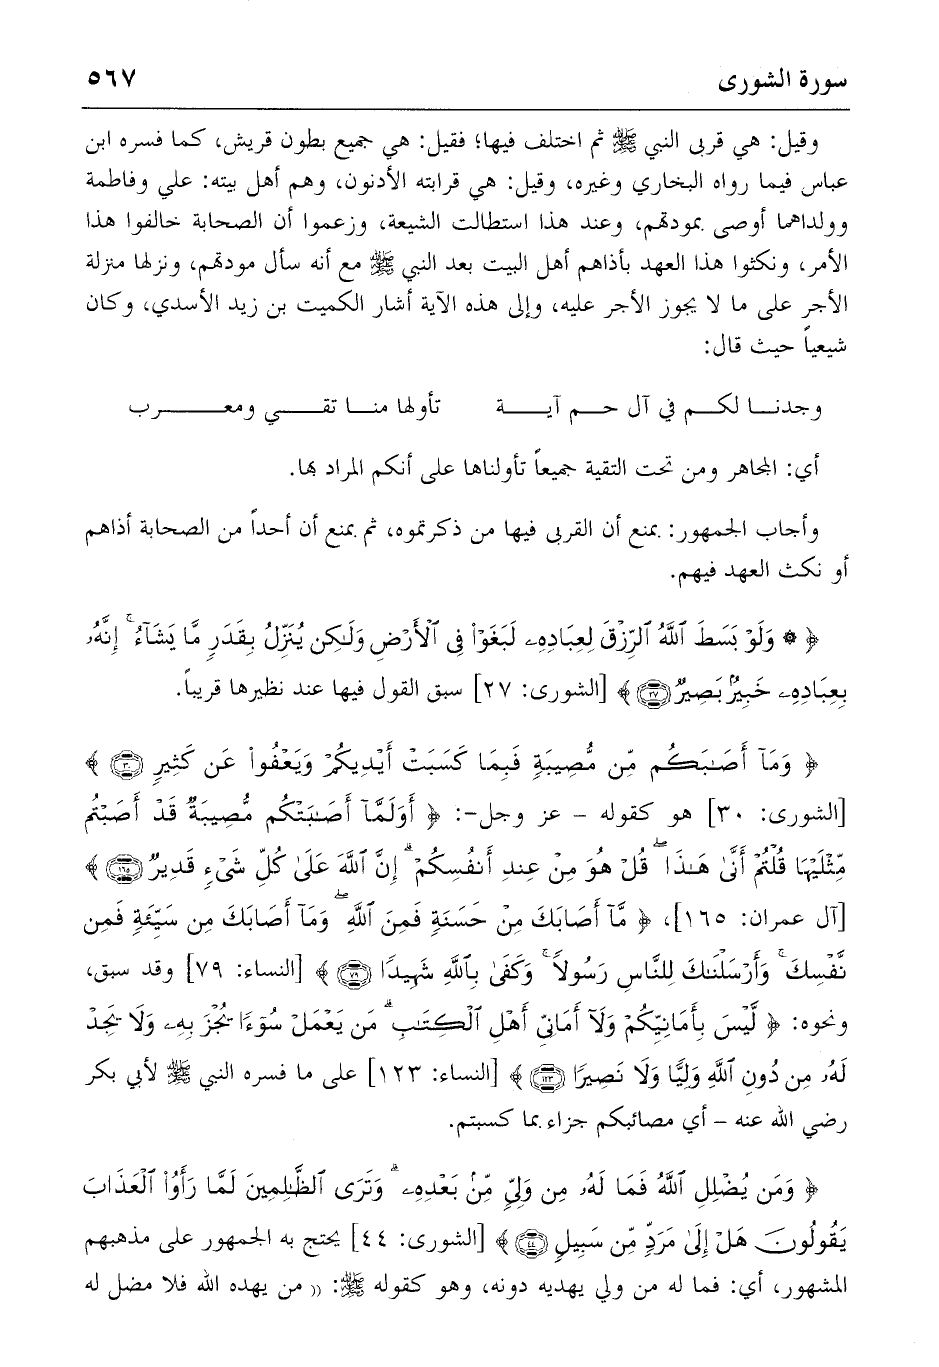 سورة الشورى ٥٦٧
وقيل: هي قربى النبي ﷺ ثم اختلف فيها؛ فقيل: هي جميع بطون قريش، كما فسره ابن
عباس فيما رواه البخاري وغيره، وقيل: هي قرابته الأدنون، وهم أهل بيته: علي وفاطمة
وولداهما أوصى بمودتهم، وعند هذا استطالت الشيعة، وزعموا أن الصحابة خالفوا هذا
الأمر، ونكثوا هذا العهد بأذاهم أهل البيت بعد النبي ﷺ مع أنه سأل مودتهم، ونزلها منزلة
الأجر على ما لا يجوز الأجر عليه، وإلى هذه الآية أشار الكميت بن زيد الأسدي، وكان
شيعياً حيث قال:
وجدنـــا لكـــم في آل حـــم آيـــة تأولها منـــا تقـــي ومعـــرب
أي: المجاهر ومن تحت التقية جميعاً تأولناها على أنكم المراد بها.
وأجاب الجمهور: بمنع أن القربى فيها من ذكرتموه، ثم بمنع أن أحداً من الصحابة أذاهم
أو نكث العهد فيهم.
﴿ ۞ وَلَوْ بَسَطَ ٱللَّهُ ٱلرِّزْقَ لِعِبَادِهِۦ لَبَغَوْا۟ فِى ٱلْأَرْضِ وَلَـٰكِن يُنَزِّلُ بِقَدَرٍ مَّا يَشَآءُ ۚ إِنَّهُۥ
بِعِبَادِهِۦ خَبِيرٌۢ بَصِيرٌ ٢٧ ﴾ [الشورى: ٢٧] سبق القول فيها عند نظيرها قريباً.
﴿ وَمَآ أَصَـٰبَكُم مِّن مُّصِيبَةٍ فَبِمَا كَسَبَتْ أَيْدِيكُمْ وَيَعْفُوا۟ عَن كَثِيرٍ ٣٠ ﴾
[الشورى: ٣٠] هو كقوله - عز وجل-: ﴿ أَوَلَمَّآ أَصَـٰبَتْكُم مُّصِيبَةٌ قَدْ أَصَبْتُم
مِّثْلَيْهَا قُلْتُمْ أَنَّىٰ هَـٰذَا ۖ قُلْ هُوَ مِنْ عِندِ أَنفُسِكُمْ ۗ إِنَّ ٱللَّهَ عَلَىٰ كُلِّ شَىْءٍ قَدِيرٌ ١٦٥ ﴾
[آل عمران: ١٦٥]، ﴿ مَّآ أَصَابَكَ مِنْ حَسَنَةٍ فَمِنَ ٱللَّهِ ۖ وَمَآ أَصَابَكَ مِن سَيِّئَةٍ فَمِن
نَّفْسِكَ ۚ وَأَرْسَلْنَـٰكَ لِلنَّاسِ رَسُولًا ۚ وَكَفَىٰ بِٱللَّهِ شَهِيدًا ٧٩ ﴾ [النساء: ٧٩] وقد سبق،
ونحوه: ﴿ لَّيْسَ بِأَمَانِيِّكُمْ وَلَآ أَمَانِىِّ أَهْلِ ٱلْكِتَـٰبِ ۗ مَن يَعْمَلْ سُوٓءًا يُجْزَ بِهِۦ وَلَا يَجِدْ
لَهُۥ مِن دُونِ ٱللَّهِ وَلِيًّا وَلَا نَصِيرًا ١٢٣ ﴾ [النساء: ١٢٣] على ما فسره النبي ﷺ لأبي بكر
رضي الله عنه - أي مصائبكم جزاء بما كسبتم.
﴿ وَمَن يُضْلِلِ ٱللَّهُ فَمَا لَهُۥ مِن وَلِىٍّ مِّنۢ بَعْدِهِۦ ۗ وَتَرَى ٱلظَّـٰلِمِينَ لَمَّا رَأَوُا۟ ٱلْعَذَابَ
يَقُولُونَ هَلْ إِلَىٰ مَرَدٍّ مِّن سَبِيلٍ ٤٤ ﴾ [الشورى: ٤٤] يحتج به الجمهور على مذهبهم
المشهور، أي: فما له من ولي يهديه دونه، وهو كقوله ﷺ: (( من يهده الله فلا مضل له